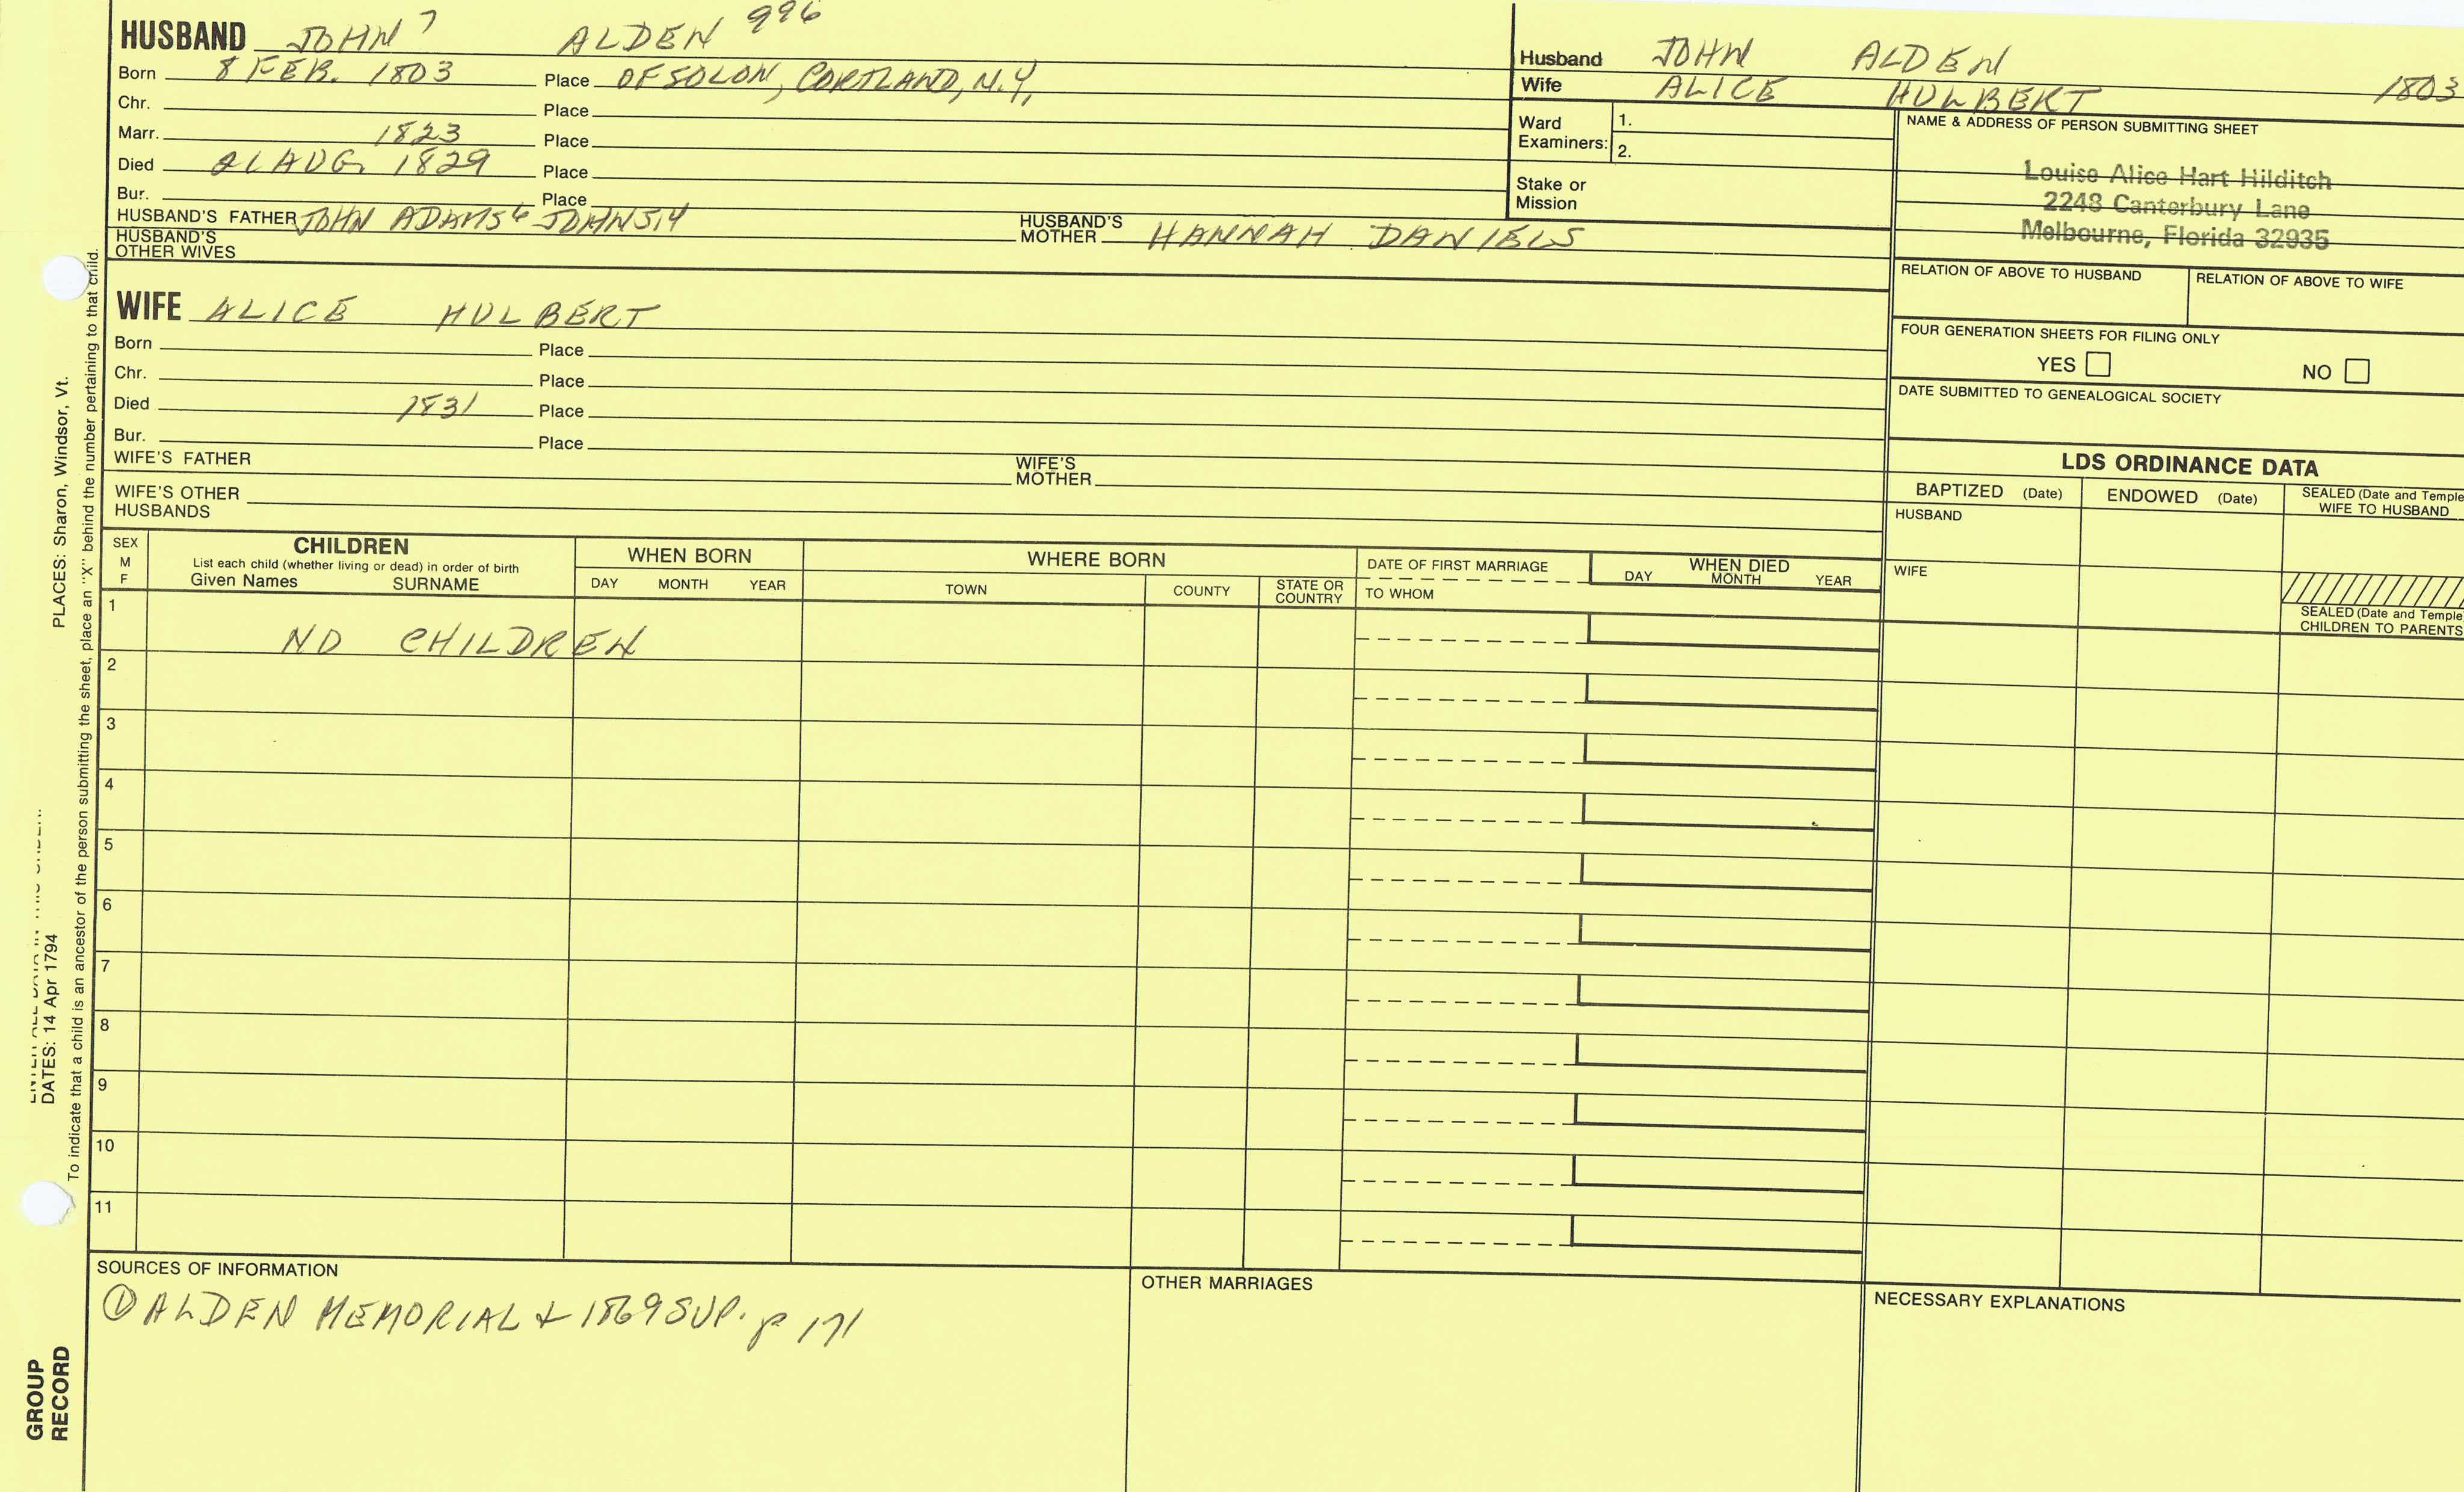 HUSBAND JOHN 7 ALDEN 996
Born 8 FEB. 1803 Place OF SOLON, CORTLAND, N.Y.
Chr. Place
Marr. 1823 Place
Died 21 AUG. 1829 Place
Bur. Place
HUSBAND'S FATHER JOHN ADAMS 6 JOHN 5,4 HUSBAND'S MOTHER HANNAH DANIELS
HUSBAND'S OTHER WIVES
Husband JOHN ALDEN 1803
Wife ALICE HULBERT
Ward Examiners: 1.
2.
Stake or Mission
NAME & ADDRESS OF PERSON SUBMITTING SHEET
Louise Alice Hart Hilditch
2248 Canterbury Lane
Melbourne, Florida 32935
RELATION OF ABOVE TO HUSBAND RELATION OF ABOVE TO WIFE
FOUR GENERATION SHEETS FOR FILING ONLY
YES NO
DATE SUBMITTED TO GENEALOGICAL SOCIETY
WIFE ALICE HULBERT
Born Place
Chr. Place
Died 1831 Place
Bur. Place
WIFE'S FATHER WIFE'S MOTHER
WIFE'S OTHER HUSBANDS
LDS ORDINANCE DATA
BAPTIZED (Date) ENDOWED (Date) SEALED (Date and Temple
WIFE TO HUSBAND
HUSBAND
WIFE
SEALED (Date and Temple
CHILDREN TO PARENTS
SEX M F
CHILDREN
List each child (whether living or dead) in order of birth
Given Names SURNAME
WHEN BORN
DAY MONTH YEAR
WHERE BORN
TOWN COUNTY STATE OR COUNTRY
DATE OF FIRST MARRIAGE
TO WHOM
WHEN DIED
DAY MONTH YEAR
1
NO CHILDREN
2
3
4
5
6
7
8
9
10
11
SOURCES OF INFORMATION
① ALDEN MEMORIAL & 1869 SUP. p 171
OTHER MARRIAGES
NECESSARY EXPLANATIONS
DATES: 14 Apr 1794
PLACES: Sharon, Windsor, Vt.
To indicate that a child is an ancestor of the person submitting the sheet, place an "X" behind the number pertaining to that child.
GROUP
RECORD